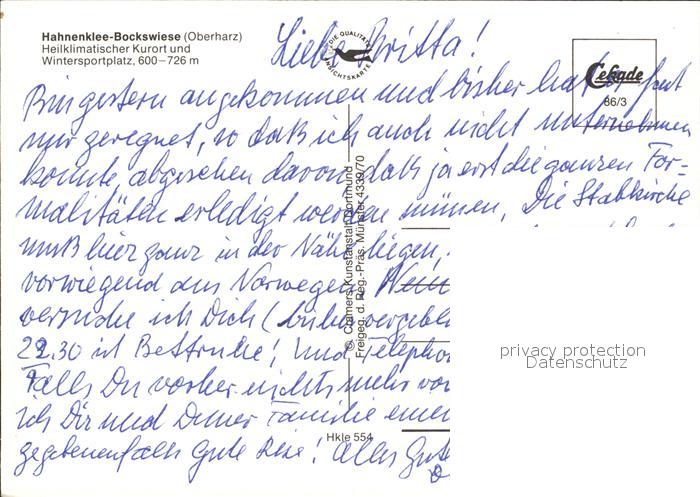 Hahnenklee-Bockswiese (Oberharz)
Heilklimatischer Kurort und
Wintersportplatz, 600–726 m
DIE QUALITÄTS ANSICHTSKARTE
Cekade
86/3
Liebe Britta!
Bin gestern angekommen und bisher hat es fast
nur geregnet, so daß ich auch nicht unternehmen
konnte, abgesehen davon, daß ja erst die ganzen For-
malitäten erledigt werden müssen. Die Stabkirche
muß hier ganz in der Nähe liegen,
vorwiegend aus Norwegen.
versuche ich Dich (bisher vergeblich
22.30 ist Bettruhe! Und Telephon
Falls Du vorher nichts mehr von
ich Dir und Deiner Familie einen
gegebenenfalls Gute Reise! Alles Gute
© Cramers Kunstanstalt Dortmund
Freigeg. d. Reg.-Präs. Münster 4339/70
Hkle 554
privacy protection
Datenschutz